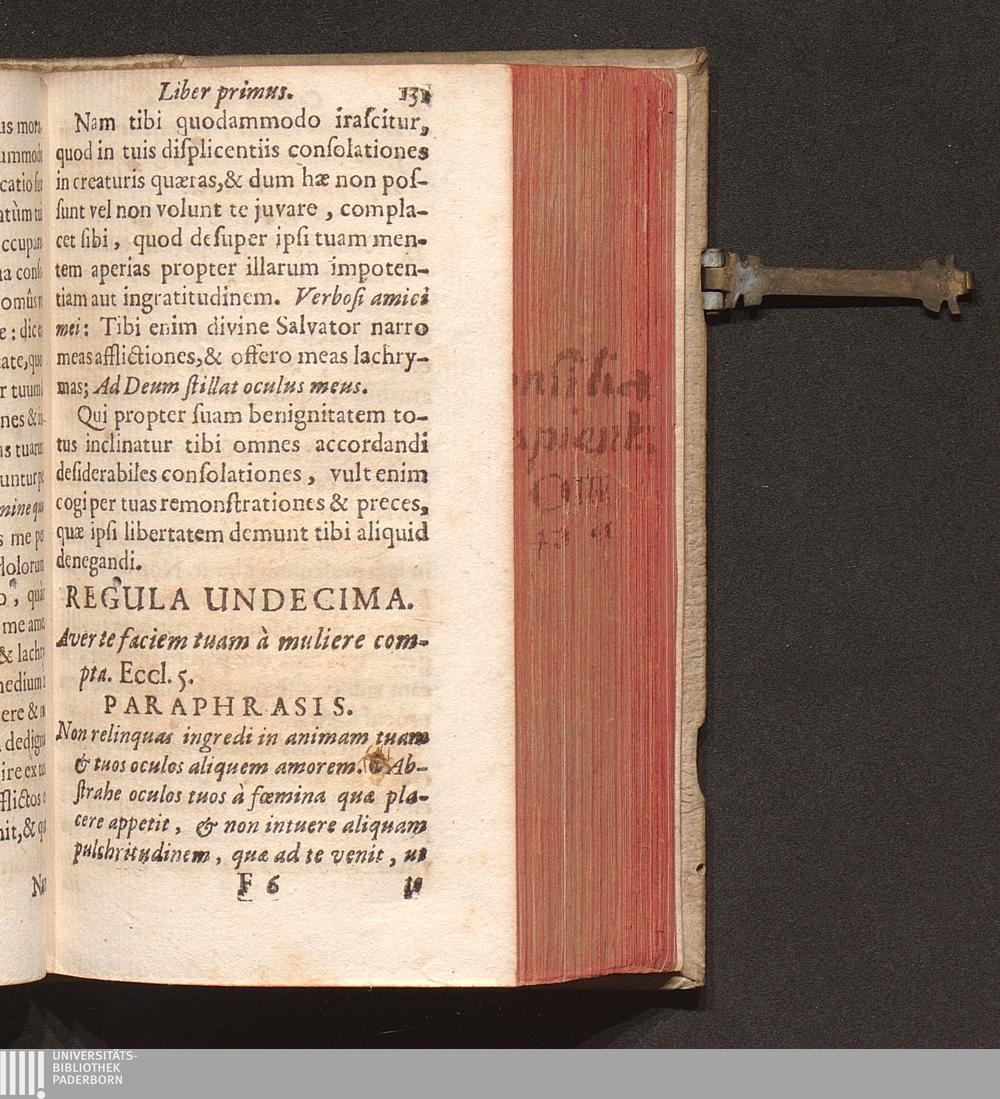 Liber primus. 131
Nam tibi quodammodo iraſcitur,
quod in tuis diſplicentiis conſolationes
in creaturis quæras,& dum hæ non poſ-
ſunt vel non volunt te juvare , compla-
cet ſibi , quod deſuper ipſi tuam men-
tem aperias propter illarum impoten-
tiam aut ingratitudinem. Verboſi amici
mei: Tibi enim divine Salvator narro
meas afflictiones,& offero meas lachry-
mas; Ad Deum ſtillat oculus meus.
Qui propter ſuam benignitatem to-
tus inclinatur tibi omnes accordandi
deſiderabiles conſolationes , vult enim
cogi per tuas remonſtrationes & preces,
quæ ipſi libertatem demunt tibi aliquid
denegandi.
REGULA UNDECIMA.
Averte faciem tuam à muliere com-
pta. Eccl. 5.
PARAPHRASIS.
Non relinquas ingredi in animam tuam
& tuos oculos aliquem amorem. Ab-
ſtrahe oculos tuos à fœmina quæ pla-
cere appetit, & non intuere aliquam
pulchritudinem, quæ ad te venit, ut
F 6
UNIVERSITÄTS-
BIBLIOTHEK
PADERBORN